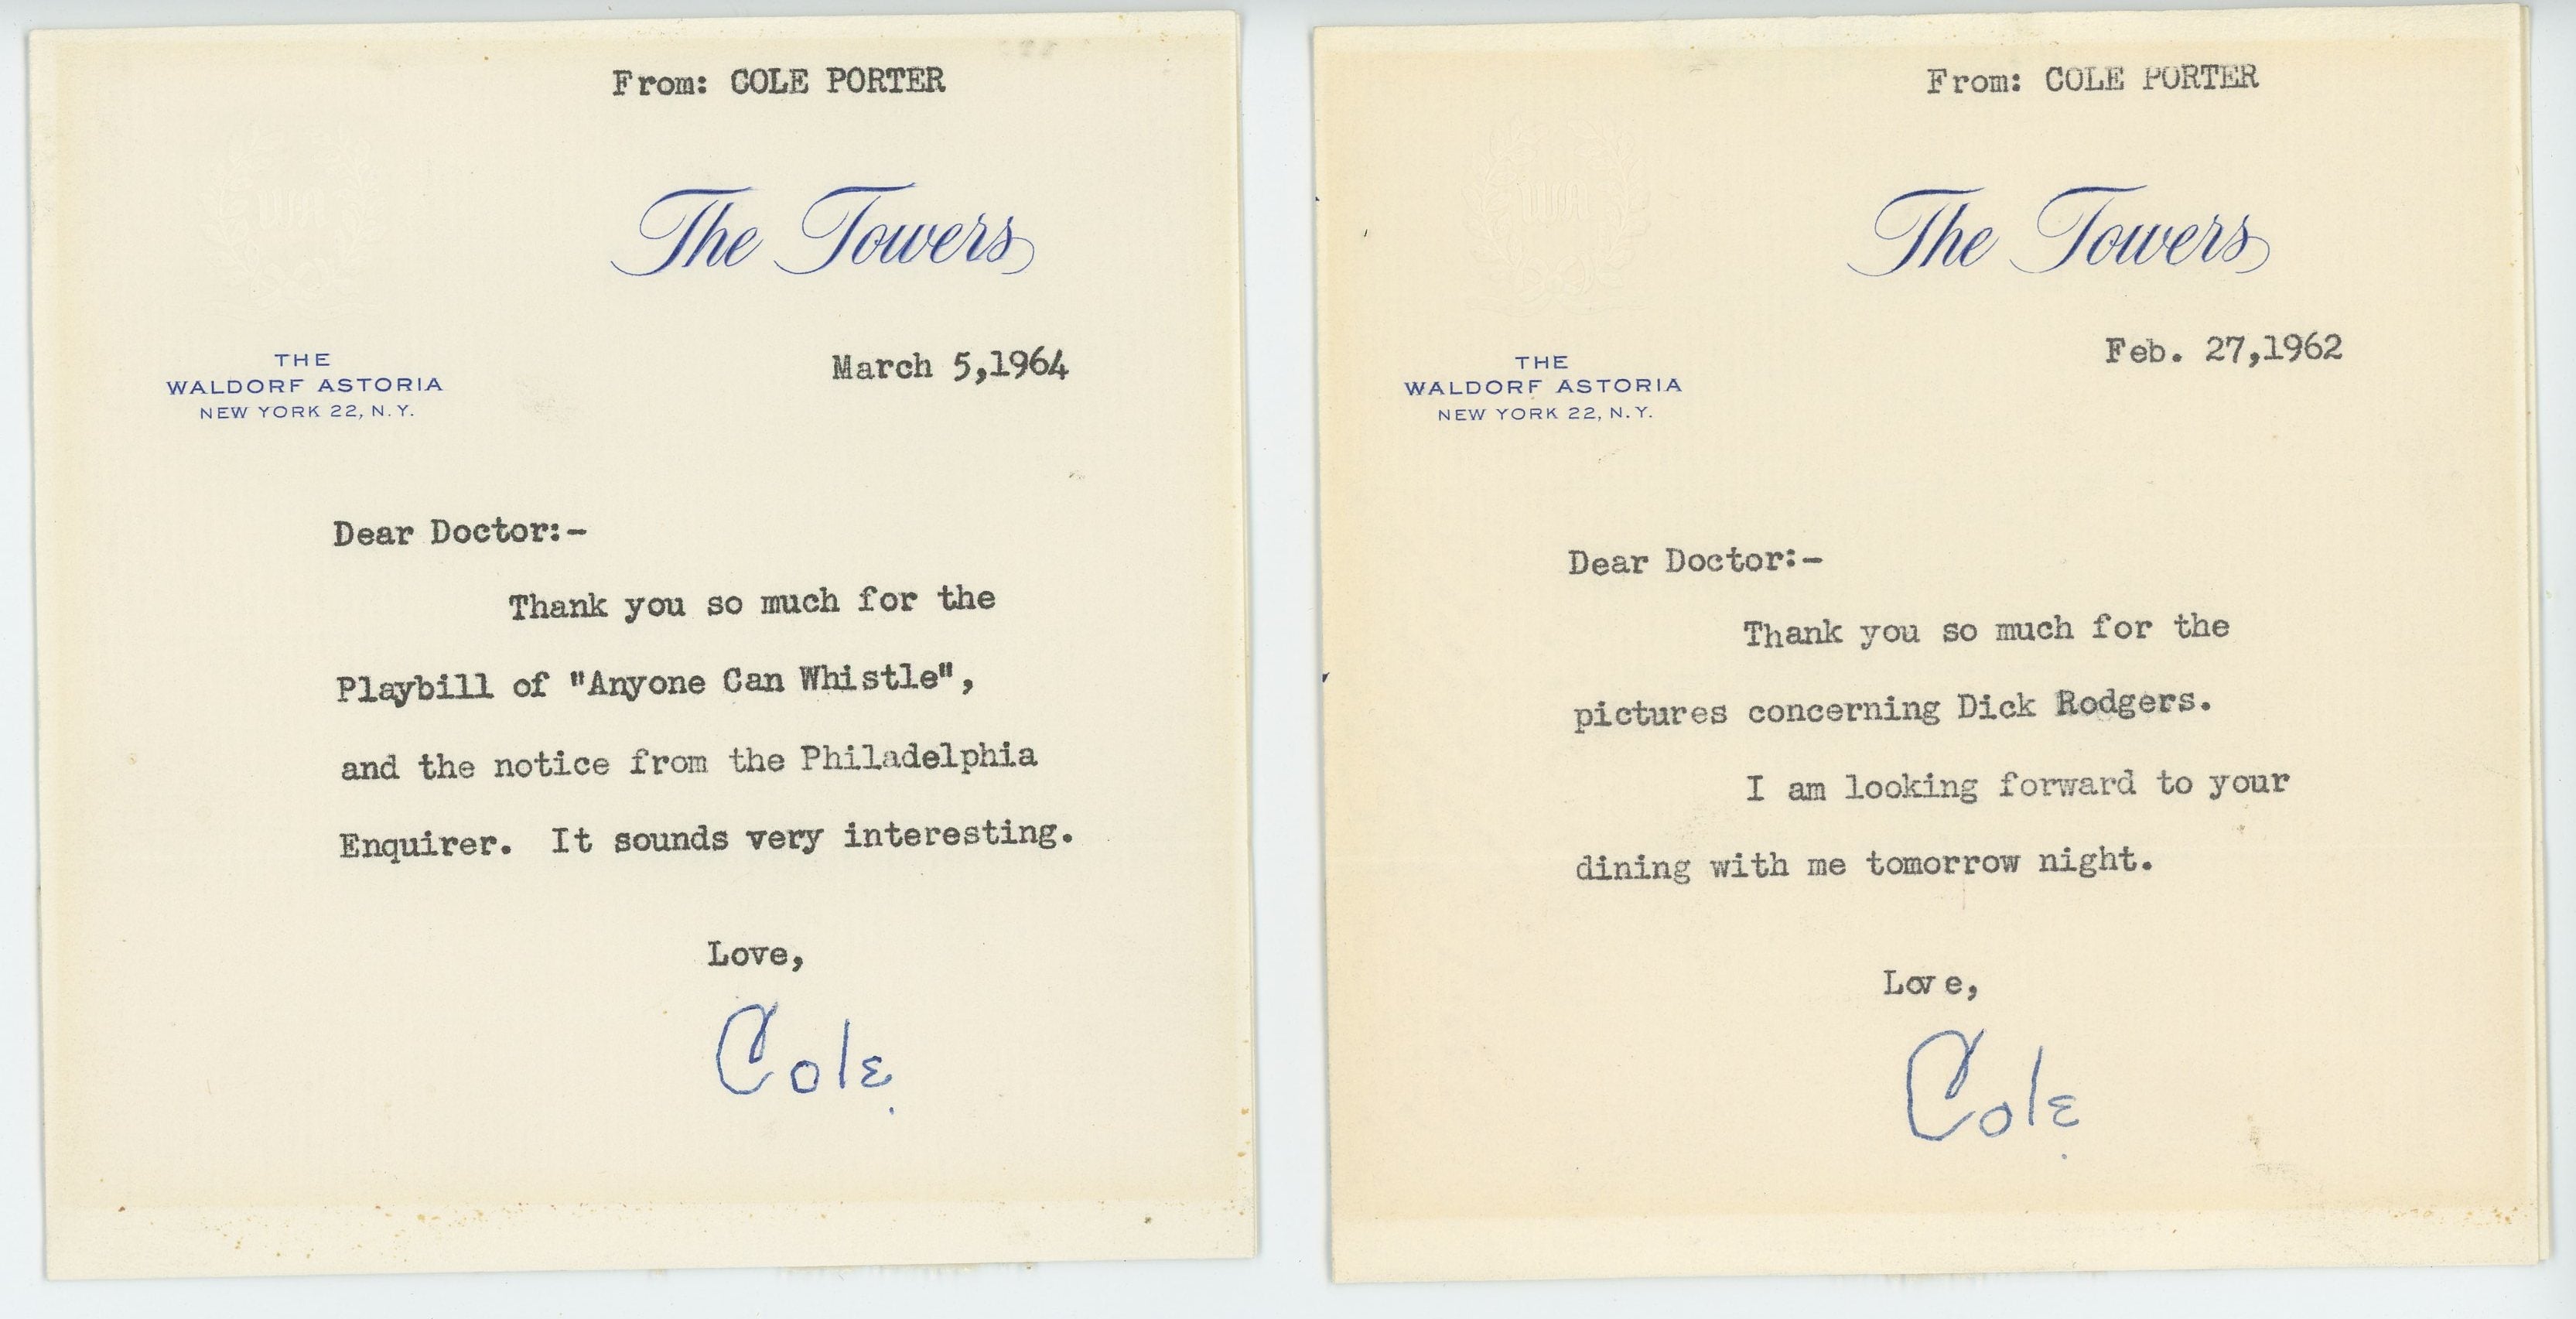 From: COLE PORTER
The Towers
March 5,1964
THE
WALDORF ASTORIA
NEW YORK 22, N.Y.
Dear Doctor:-
Thank you so much for the
Playbill of "Anyone Can Whistle",
and the notice from the Philadelphia
Enquirer. It sounds very interesting.
Love,
Cole.
From: COLE PORTER
The Towers
Feb. 27,1962
THE
WALDORF ASTORIA
NEW YORK 22, N.Y.
Dear Doctor:-
Thank you so much for the
pictures concerning Dick Rodgers.
I am looking forward to your
dining with me tomorrow night.
Love,
Cole.